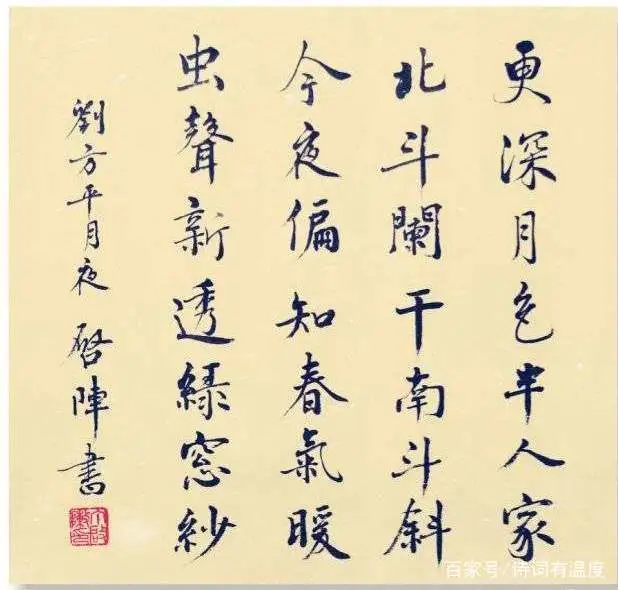 更深月色半人家
北斗闌干南斗斜
今夜偏知春氣暖
虫聲新透綠窓紗
劉方平月夜 啓陣書
百家号/诗词有温度